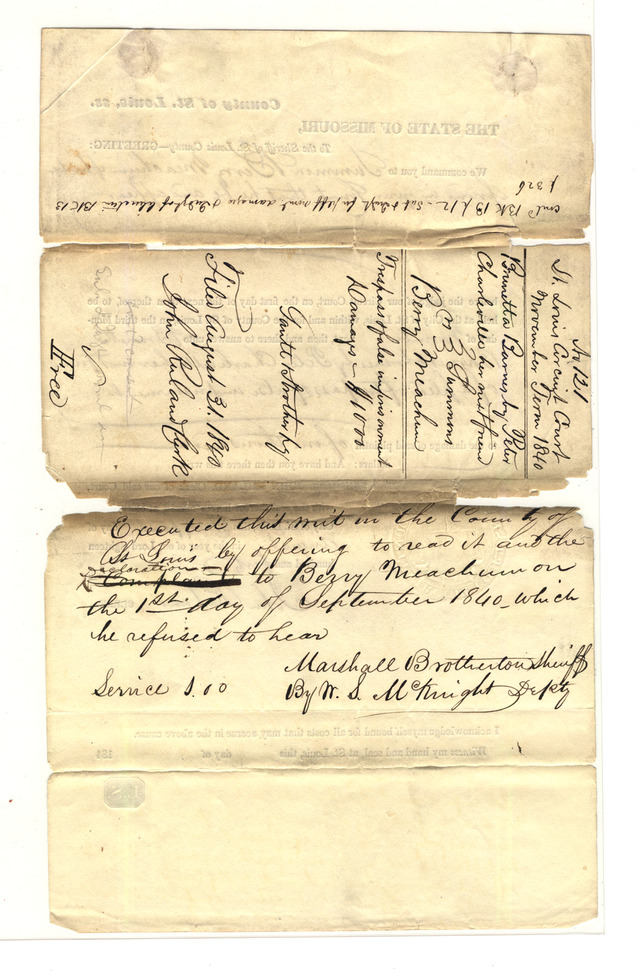 County of St. Louis, ss.
THE STATE OF MISSOURI,
To the Sheriff of St. Louis County—GREETING:
We command you to Summon
cont'd BK 13 p 12 - damages BK 13
p 326
No 121
St. Louis Circuit Court
November Term 1840
Brunetta Barnes by Peter
Charleville her next friend
vs } Summons
Berry Meachum
Trespass & false imprisonment
Damages - $1000
Gantt & Brotherton
Filed August 31. 1840
John Ruland Clerk
Free
Executed this writ in the County of
St Louis by offering to read it and the
declaration
& Complaint to Berry Meachum on
the 1st. day of September 1840 - which
he refused to hear
Marshall Brotherton Sheriff
Service 1.00 By W. S. McKnight Depty
I acknowledge myself bound for all cost that may accrue in the above cause.
Witness my hand and seal, at St. Louis, this day of 184